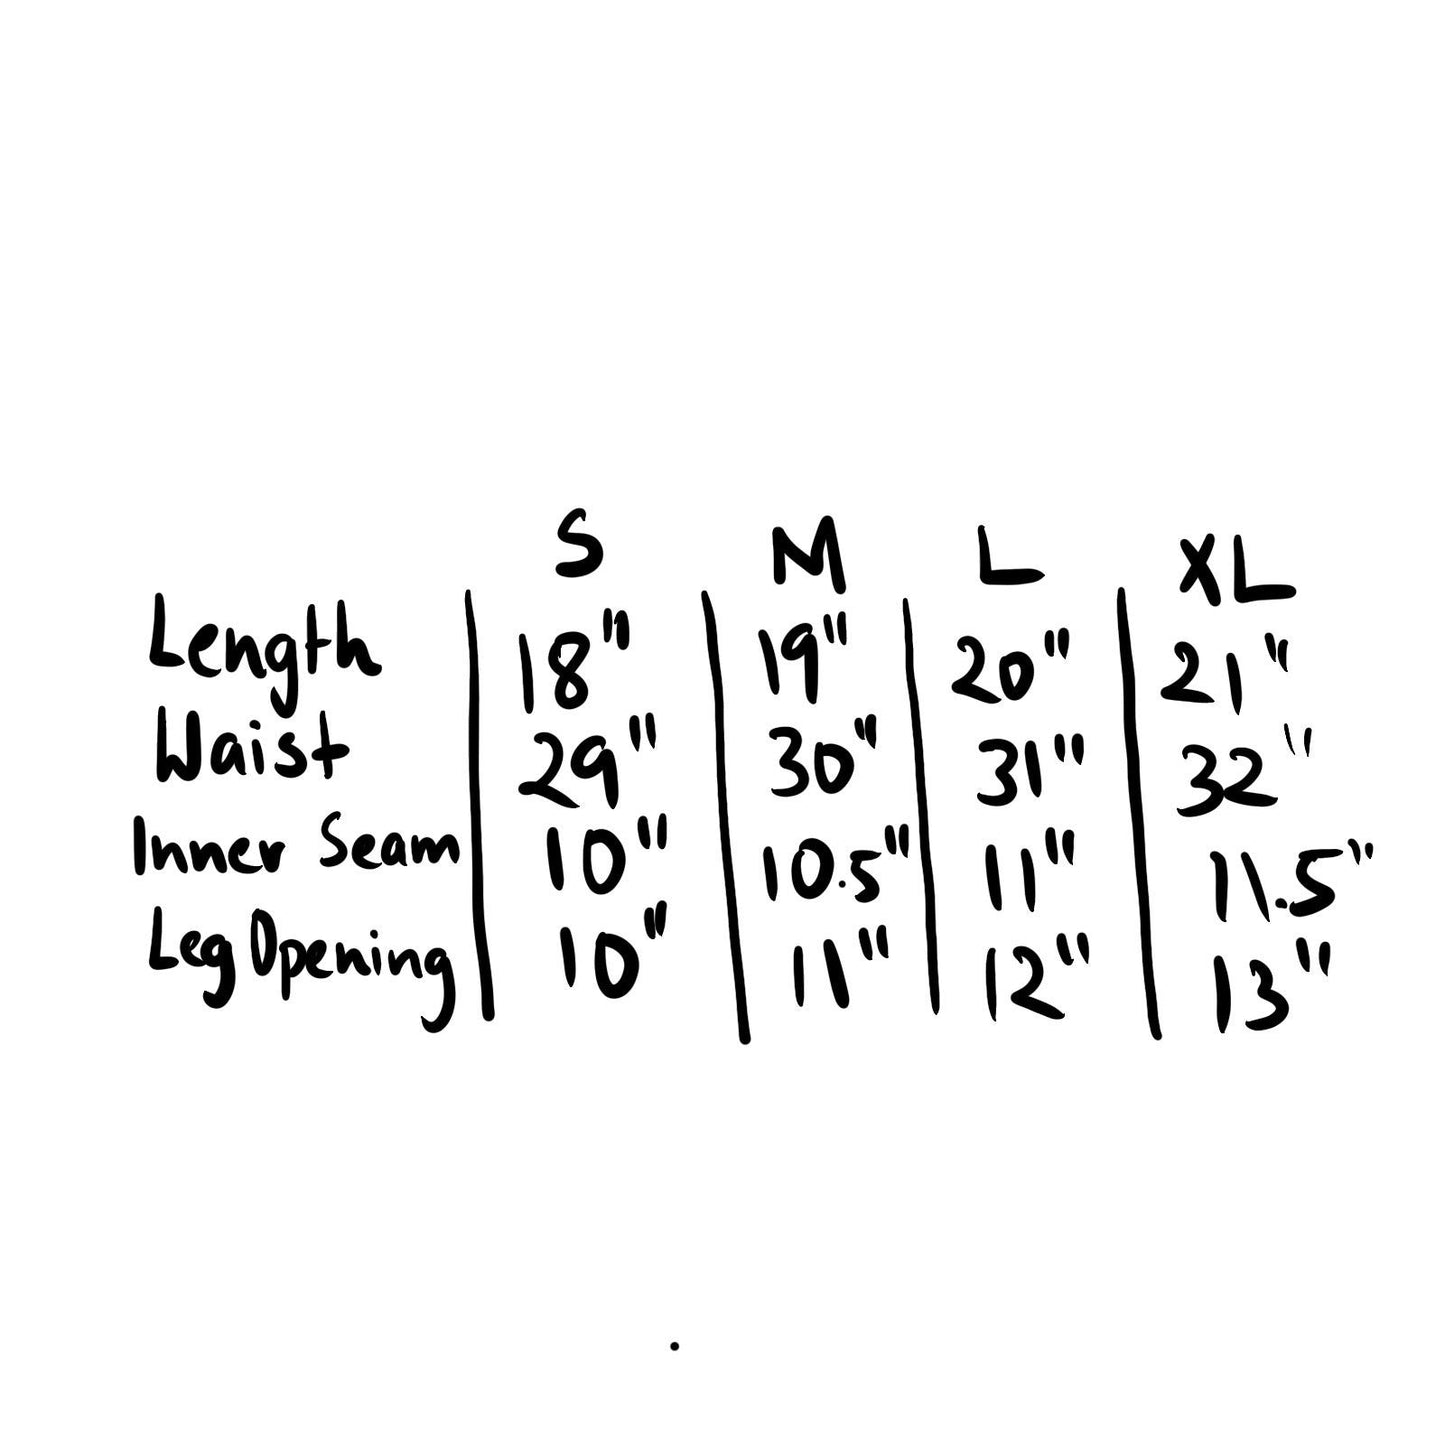 S M L XL
Length 18" 19" 20" 21"
Waist 29" 30" 31" 32"
Inner Seam 10" 10.5" 11" 11.5"
Leg Opening 10" 11" 12" 13"